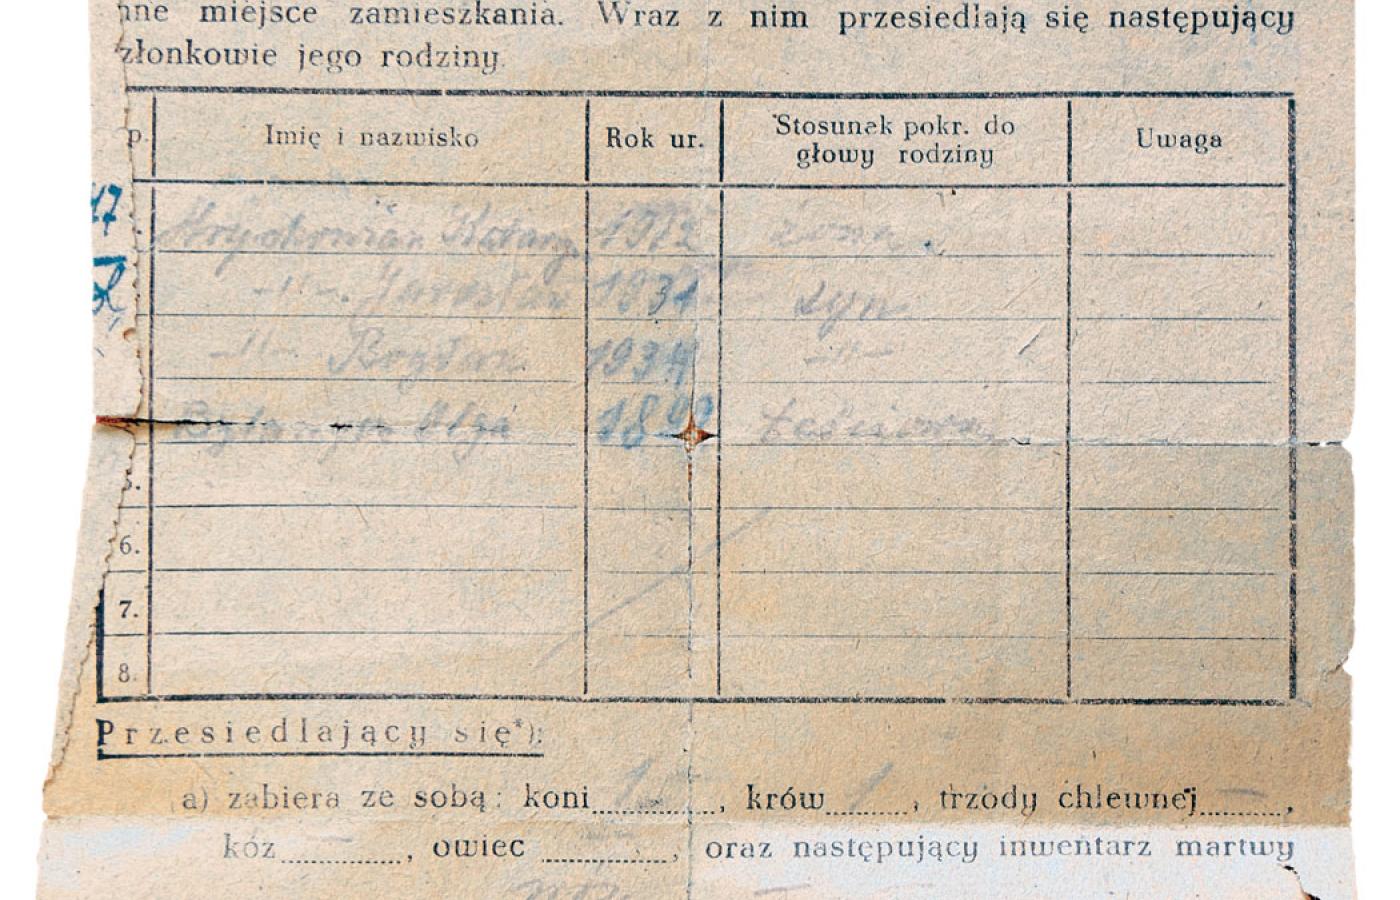 nne miejsce zamieszkania. Wraz z nim przesiedlają się następujący
złonkowie jego rodziny.
p. Imię i nazwisko Rok ur. Stosunek pokr. do głowy rodziny Uwaga
47
1912 żona
-"- Jarosław 1931 syn
-"- Bogdan 1934 -"-
Olga 18 teściowa
5.
6.
7.
8.
Przesiedlający się*):
a) zabiera ze sobą: koni 1, krów 1, trzody chlewnej —,
kóz —, owiec, oraz następujący inwentarz martwy